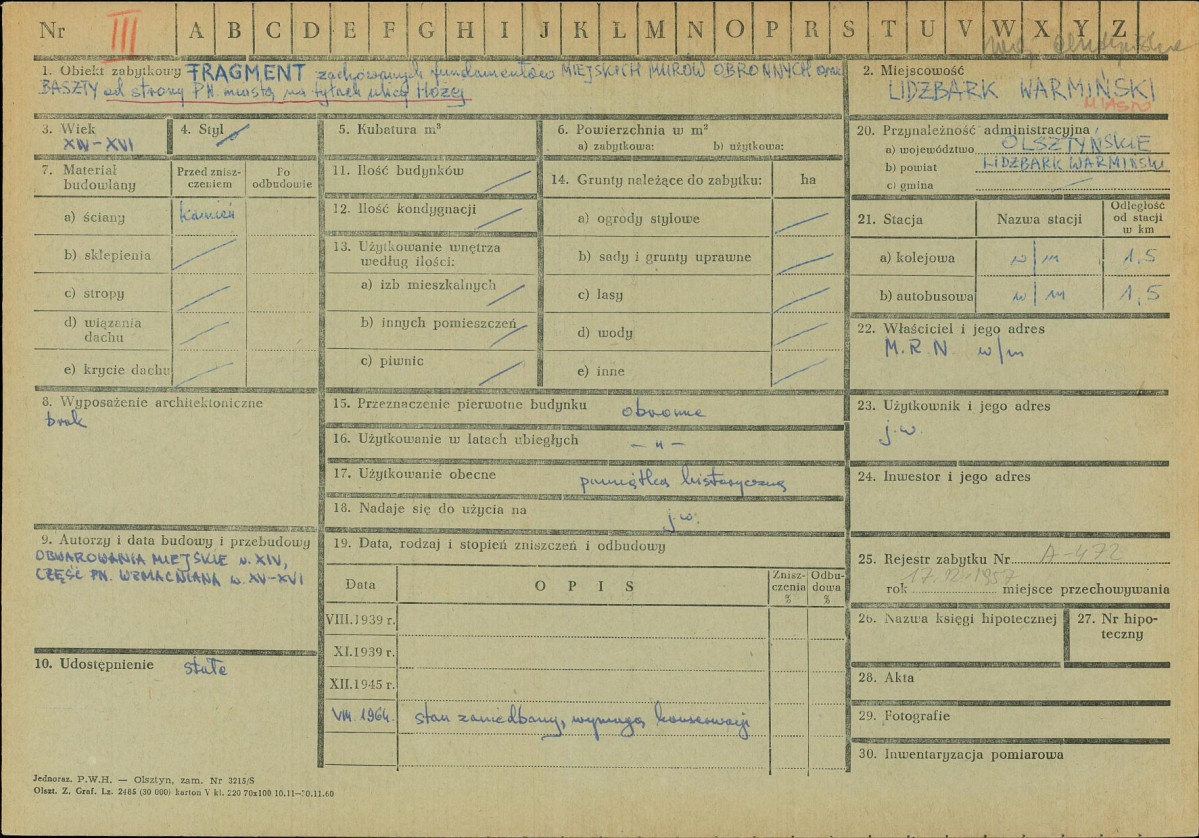 Nr III A B C D E F G H I J K L M N O P R S T U V W X Y Z
1. Obiekt zabytkowy FRAGMENT zachowanych fundamentów MIEJSKICH MURÓW OBRONNYCH oraz
BASZTY od strony PN. miasta na tyłach ulicy Hożej
2. Miejscowość
LIDZBARK WARMIŃSKI
MIASTO
3. Wiek
XIV-XVI
4. Styl
5. Kubatura m³
6. Powierzchnia w m²
a) zabytkowa: b) użytkowa:
20. Przynależność administracyjna
a) województwo OLSZTYŃSKIE
b) powiat LIDZBARK WARMIŃSKI
c) gmina
7. Materiał
budowlany
Przed znisz-
czeniem
Po
odbudowie
a) ściany kamień
b) sklepienia
c) stropy
d) wiązania
dachu
e) krycie dachu
11. Ilość budynków
12. Ilość kondygnacji
13. Użytkowanie wnętrza
według ilości:
a) izb mieszkalnych
b) innych pomieszczeń
c) piwnic
14. Grunty należące do zabytku: ha
a) ogrody stylowe
b) sady i grunty uprawne
c) lasy
d) wody
e) inne
21. Stacja Nazwa stacji
Odległość
od stacji
w km
a) kolejowa w/m 1,5
b) autobusowa w/m 1,5
22. Właściciel i jego adres
M.R.N. w/m
8. Wyposażenie architektoniczne
brak
15. Przeznaczenie pierwotne budynku obronne
16. Użytkowanie w latach ubiegłych — " —
17. Użytkowanie obecne pamiątka historyczna
18. Nadaje się do użycia na j.w.
23. Użytkownik i jego adres
j.w.
24. Inwestor i jego adres
9. Autorzy i data budowy i przebudowy
OBWAROWANIA MIEJSKIE w. XIV,
CZĘŚĆ PN. WZMACNIANA w. XV-XVI
10. Udostępnienie stałe
19. Data, rodzaj i stopień zniszczeń i odbudowy
Data OPIS
Znisz-
czenia
%
Odbu-
dowa
%
VIII.1939 r.
XI.1939 r.
XII.1945 r.
VIII. 1964. stan zaniedbany, wymaga konserwacji
25. Rejestr zabytku Nr A-472
rok 17.12.1957 miejsce przechowywania
26. Nazwa księgi hipotecznej
27. Nr hipo-
teczny
28. Akta
29. Fotografie
30. Inwentaryzacja pomiarowa
Jednoraz. P.W.H. — Olsztyn, zam. Nr 3215/S
Olszt. Z. Graf. Lz. 2485 (30 000) karton V kl. 220 70x100 10.11—30.11.60